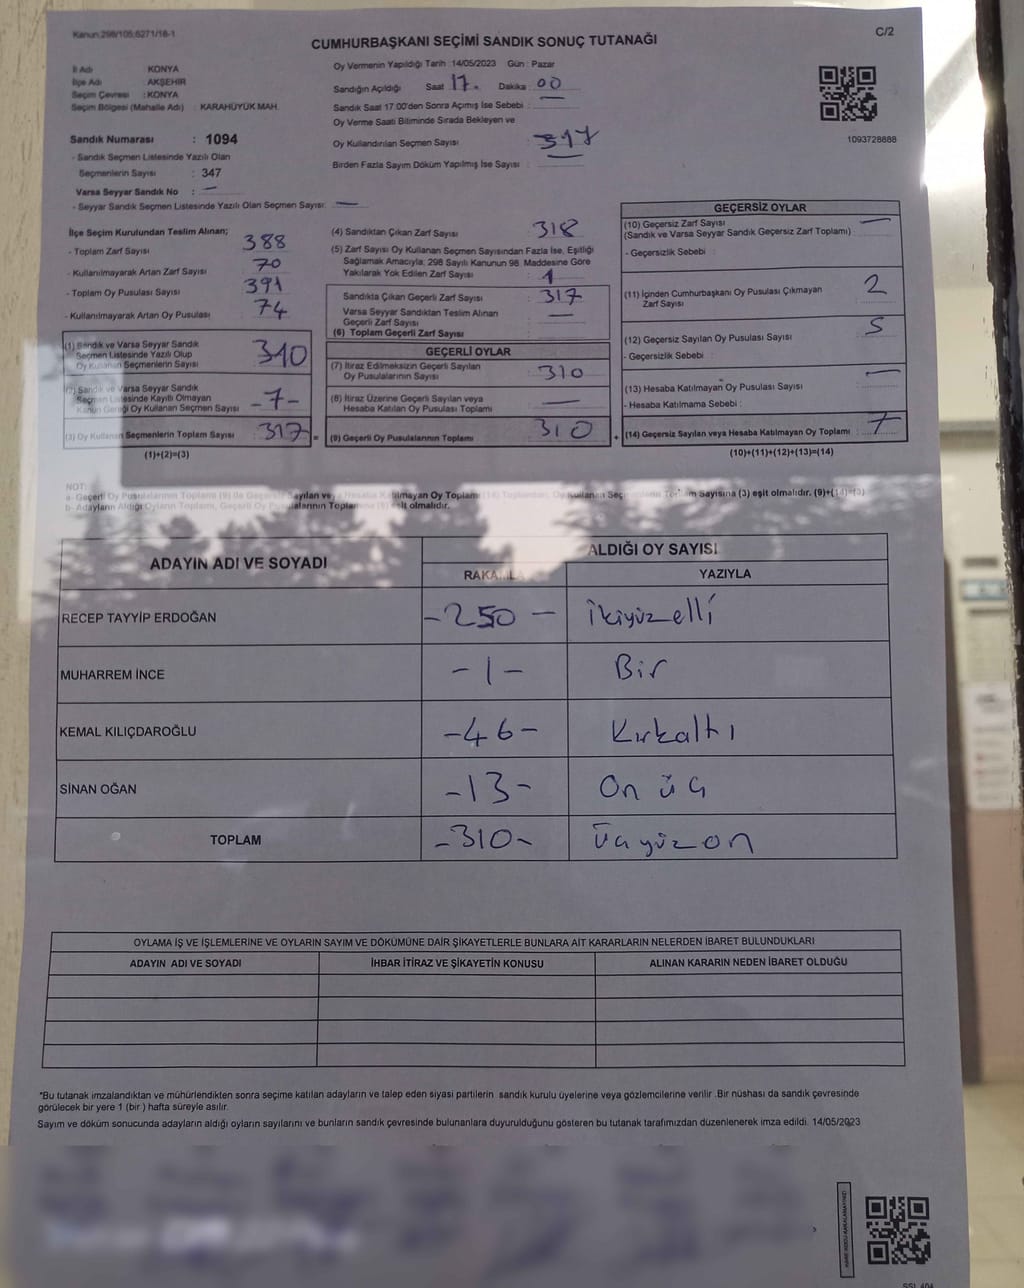 Kanun:298/105;6271/16-1
C/2
CUMHURBAŞKANI SEÇİMİ SANDIK SONUÇ TUTANAĞI
İl Adı : KONYA
İlçe Adı : AKŞEHİR
Seçim Çevresi : KONYA
Seçim Bölgesi (Mahalle Adı) : KARAHÜYÜK MAH.
Sandık Numarası : 1094
- Sandık Seçmen Listesinde Yazılı Olan
Seçmenlerin Sayısı : 347
Varsa Seyyar Sandık No : —
- Seyyar Sandık Seçmen Listesinde Yazılı Olan Seçmen Sayısı: —
Oy Vermenin Yapıldığı Tarih :14/05/2023 Gün : Pazar
Sandığın Açıldığı Saat 17 Dakika 00
Sandık Saat 17:00'den Sonra Açımış İse Sebebi : —
Oy Verme Saati Bitiminde Sırada Bekleyen ve
Oy Kullandırılan Seçmen Sayısı : 317
Birden Fazla Sayım Döküm Yapılmış İse Sayısı : —
1093728888
İlçe Seçim Kurulundan Teslim Alınan;
- Toplam Zarf Sayısı : 388
- Kullanılmayarak Artan Zarf Sayısı : 70
- Toplam Oy Pusulası Sayısı : 391
- Kullanılmayarak Artan Oy Pusulası : 74
(1) Sandık ve Varsa Seyyar Sandık
Seçmen Listesinde Yazılı Olup
Oy Kullanan Seçmenlerin Sayısı : 310
(2) Sandık ve Varsa Seyyar Sandık
Seçmen Listesinde Kayıtlı Olmayan
Kanun Gereği Oy Kullanan Seçmen Sayısı : -7-
(3) Oy Kullanan Seçmenlerin Toplam Sayısı : 317 =
(1)+(2)=(3)
(4) Sandıktan Çıkan Zarf Sayısı : 318
(5) Zarf Sayısı Oy Kullanan Seçmen Sayısından Fazla İse, Eşitliği
Sağlamak Amacıyla, 298 Sayılı Kanunun 98. Maddesine Göre
Yakılarak Yok Edilen Zarf Sayısı : 1
Sandıkta Çıkan Geçerli Zarf Sayısı : 317
Varsa Seyyar Sandıktan Teslim Alınan
Geçerli Zarf Sayısı : —
(6) Toplam Geçerli Zarf Sayısı
GEÇERLİ OYLAR
(7) İtiraz Edilmeksizin Geçerli Sayılan
Oy Pusulalarının Sayısı : 310
(8) İtiraz Üzerine Geçerli Sayılan veya
Hesaba Katılan Oy Pusulası Toplamı : —
(9) Geçerli Oy Pusulalarının Toplamı : 310 +
GEÇERSİZ OYLAR
(10) Geçersiz Zarf Sayısı : —
(Sandık ve Varsa Seyyar Sandık Geçersiz Zarf Toplamı)
- Geçersizlik Sebebi :
(11) İçinden Cumhurbaşkanı Oy Pusulası Çıkmayan
Zarf Sayısı : 2
(12) Geçersiz Sayılan Oy Pusulası Sayısı : 5
- Geçersizlik Sebebi :
(13) Hesaba Katılmayan Oy Pusulası Sayısı : —
- Hesaba Katılmama Sebebi :
(14) Geçersiz Sayılan veya Hesaba Katılmayan Oy Toplamı : 7
(10)+(11)+(12)+(13)=(14)
NOT:
a- Geçerli Oy Pusulalarının Toplamı (9) ile Geçersiz Sayılan veya Hesaba Katılmayan Oy Toplamı (14) Toplamları, Oy Kullanan Seçmenlerin Toplam Sayısına (3) eşit olmalıdır. (9)+(14)=(3)
b- Adayların Aldığı Oyların Toplamı, Geçerli Oy Pusulalarının Toplamına (9) eşit olmalıdır.
ADAYIN ADI VE SOYADI
ALDIĞI OY SAYISI
RAKAMLA
YAZIYLA
RECEP TAYYİP ERDOĞAN -250- İkiyüzelli
MUHARREM İNCE -1- Bir
KEMAL KILIÇDAROĞLU -46- Kırkaltı
SİNAN OĞAN -13- On üç
TOPLAM -310- Üçyüzon
OYLAMA İŞ VE İŞLEMLERİNE VE OYLARIN SAYIM VE DÖKÜMÜNE DAİR ŞİKAYETLERLE BUNLARA AİT KARARLARIN NELERDEN İBARET BULUNDUKLARI
ADAYIN ADI VE SOYADI
İHBAR İTİRAZ VE ŞİKAYETİN KONUSU
ALINAN KARARIN NEDEN İBARET OLDUĞU
*Bu tutanak imzalandıktan ve mühürlendikten sonra seçime katılan adayların ve talep eden siyasi partilerin sandık kurulu üyelerine veya gözlemcilerine verilir .Bir nüshası da sandık çevresinde
görülecek bir yere 1 (bir ) hafta süreyle asılır.
Sayım ve döküm sonucunda adayların aldığı oyların sayılarını ve bunların sandık çevresinde bulunanlara duyurulduğunu gösteren bu tutanak tarafımızdan düzenlenerek imza edildi. 14/05/2023